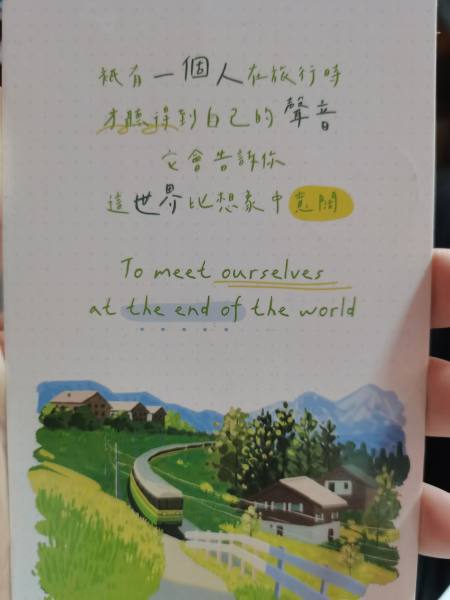 祇有一個人在旅行時
才聽得到自己的聲音
它會告訴你
這世界比想象中寬闊
To meet ourselves
at the end of the world